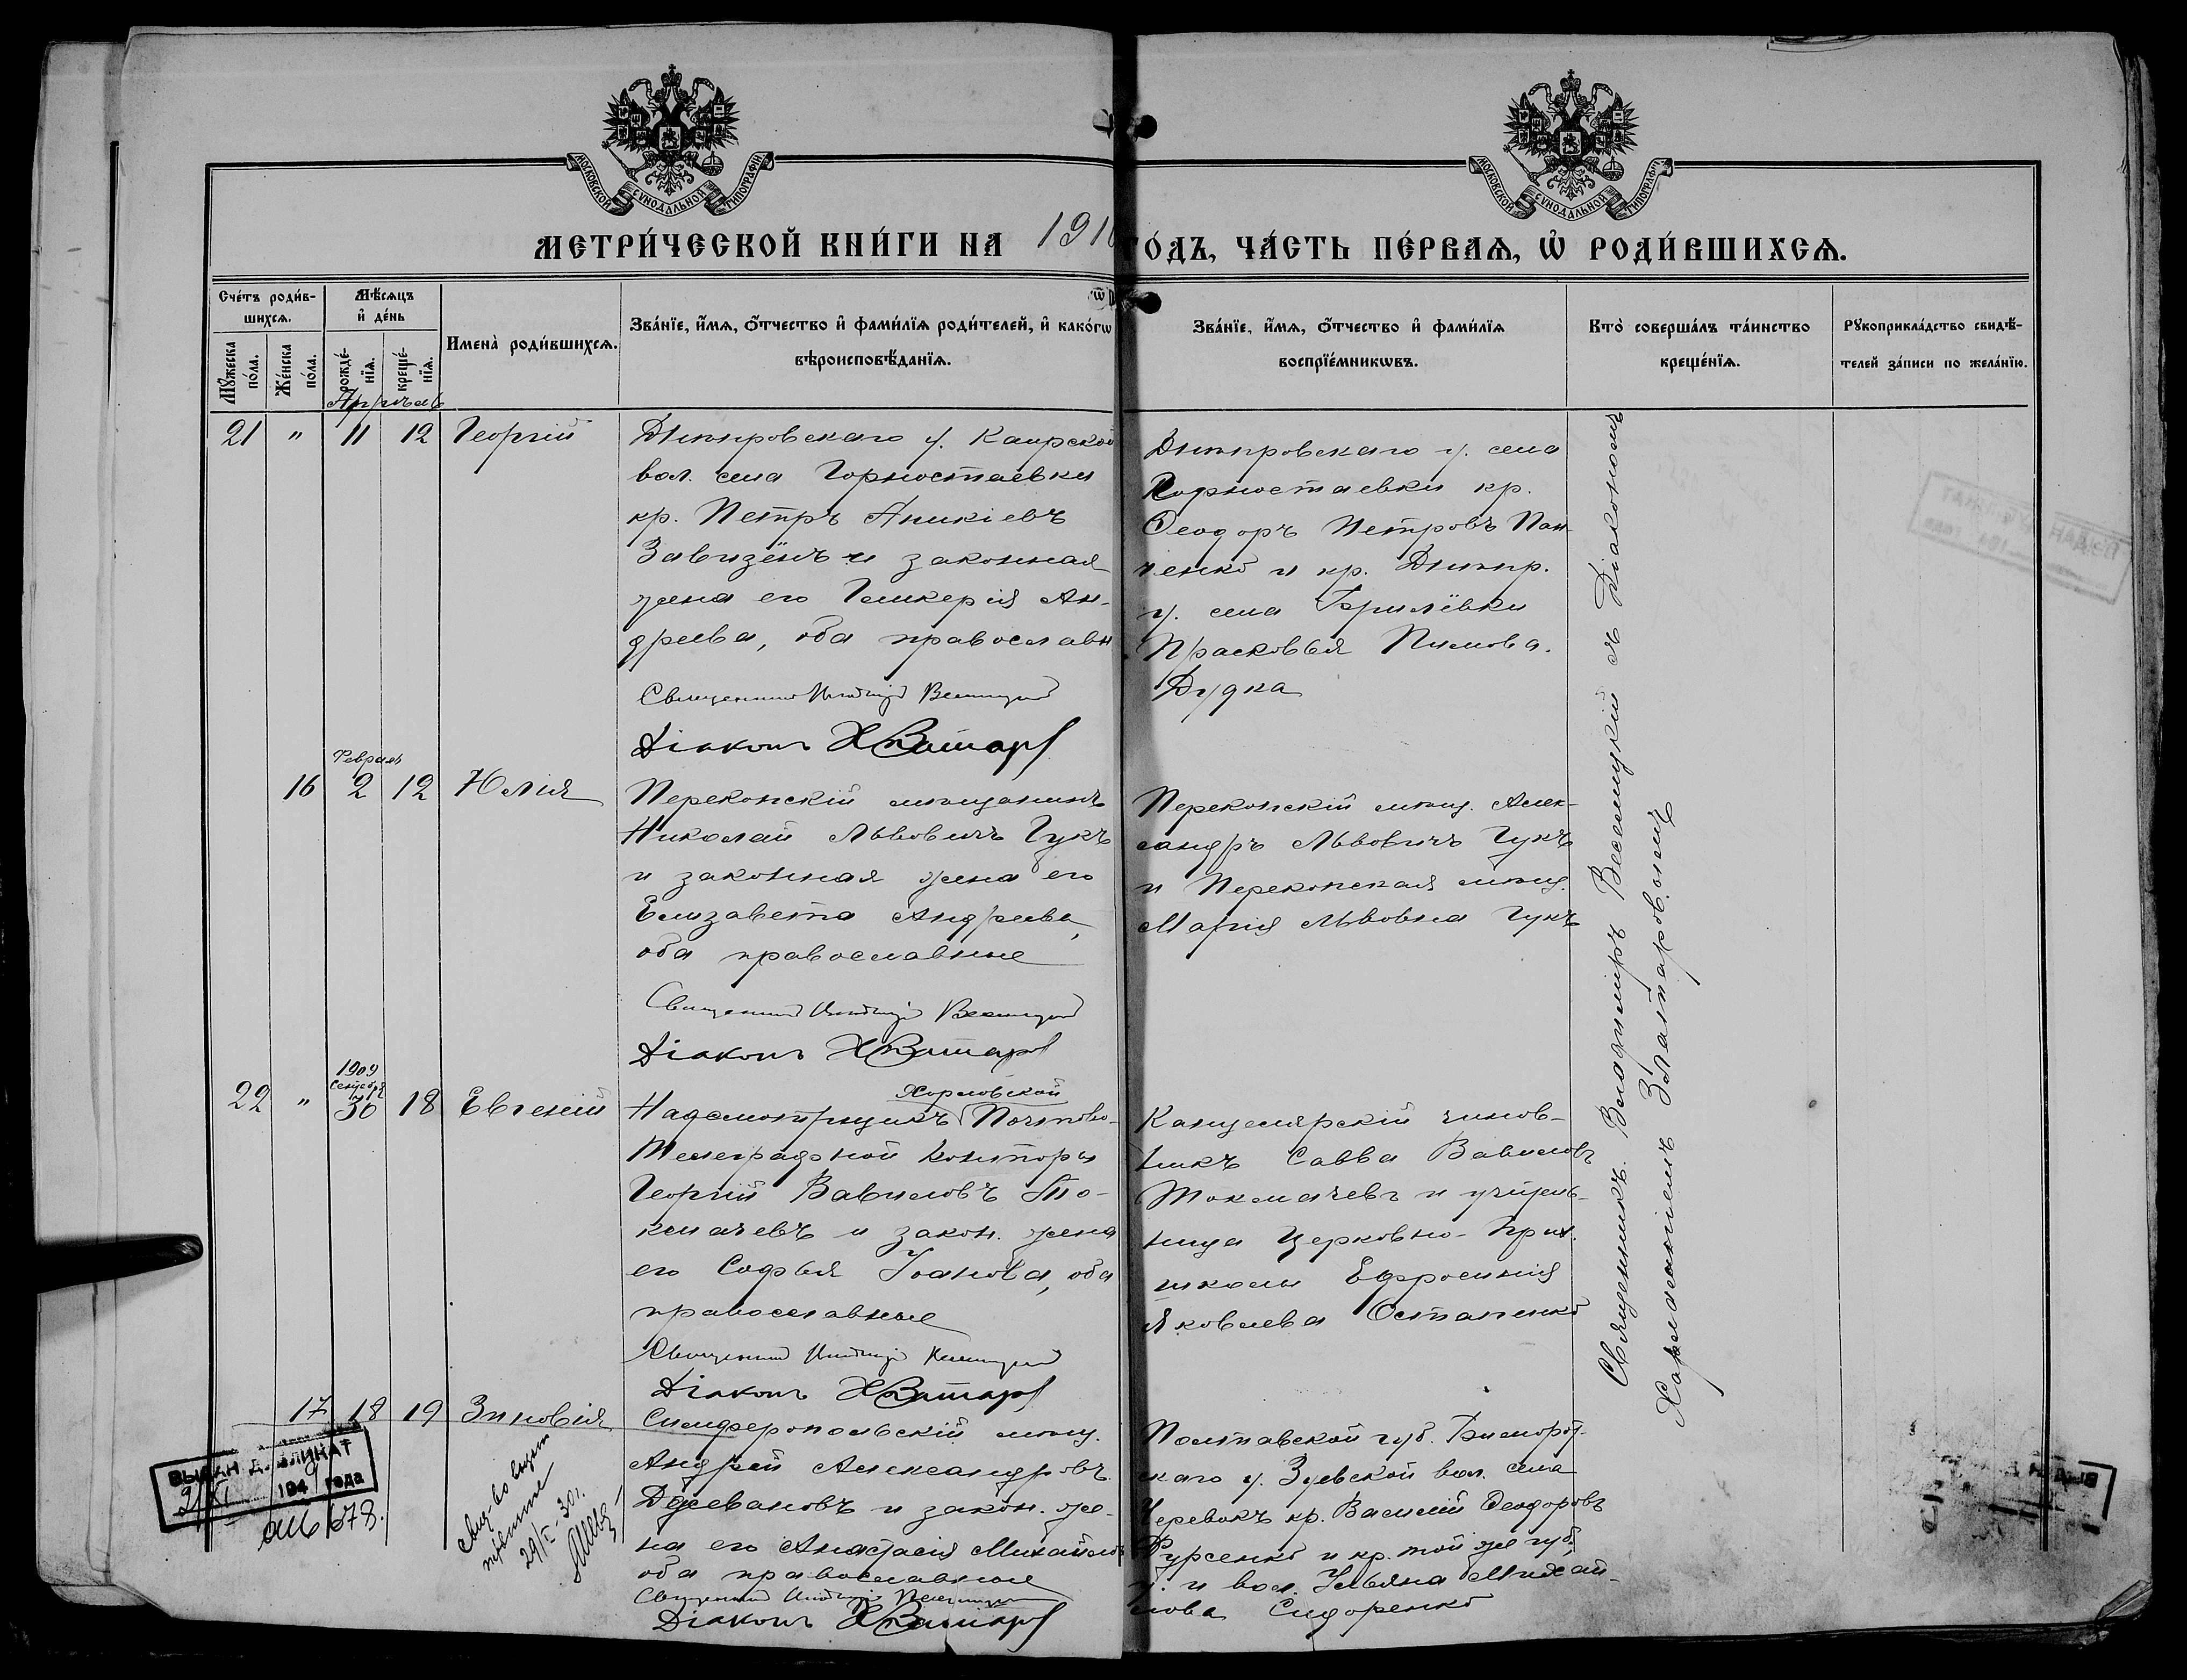 МОСКОВСКОЙ СѴНОДАЛЬНОЙ ТИПОГРАФІИ
МОСКОВСКОЙ СѴНОДАЛЬНОЙ ТИПОГРАФІИ
МЕТРИ́ЧЕСКОЙ КНИ́ГИ НА 1910
ГО́ДЪ, ЧА́СТЬ ПЕ́РВАѦ, Ѡ҆ РОДИ́ВШИХСѦ.
Сче́тъ роди́в-
шихсѧ.
Мѣ́сѧцъ
и҆ де́нь
Мꙋ́жеска
по́ла.
Же́нска
по́ла.
рожде́-
нїѧ.
креще́-
нїѧ.
Имена̀ роди́вшихсѧ.
Зва́нїе, и҆́мѧ, ѻ҆́тчество и҆ фами́лїѧ роди́телей, и҆ како́гѡ
вѣроисповѣ́данїѧ.
Зва́нїе, и҆́мѧ, ѻ҆́тчество и҆ фами́лїѧ
воспрїе́мникѡвъ.
Кто̀ соверша́лъ та́инство
креще́нїѧ.
Рꙋкоприкла́дство свидѣ́-
телей за́писи по жела́нїю.
Апрѣль
21 " 11 12 Георгій
Днѣпровскаго у. Каирской
вол. села Горностаевки
кр. Петръ Аникіевъ
Завизёнъ и законная
жена его Гликерія Ан-
дреева, оба православн
Священникъ Владиміръ Веселицкій
Діаконъ Х Златаровъ
Днѣпровскаго у. села
Горностаевки кр.
Ѳеодоръ Петровъ Пан-
ченко и кр. Днѣпр.
у. села
Прасковья Пимова.
Дудка
Февраль
16 2 12 Юлія
Перекопскій мѣщанинъ
Николай Львовичъ Гукъ
и законная жена его
Елизавета Андреева,
оба православные
Священникъ Владиміръ Веселицкій
Діаконъ Х Златаровъ
Перекопскій мѣщ. Алек-
сандръ Львовичъ Гукъ
и Перекопская мѣщ.
Марія Львовна Гукъ
1909
Сентября
22 " 30 18 Евгеній
Хорловской
Надсмотрщикъ Почтово-
Телеграфной конторы
Георгій Вавиловъ То-
кмачевъ и закон. жена
его Софья Іоанова, оба
православные
Священникъ Владиміръ Веселицкій
Діаконъ Х Златаровъ
Канцелярскій чинов-
никъ Савва Вавиловъ
Токмачевъ и учитель-
ница Церковно-Прих.
школы Ефросинія
Яковлева Остапенко
17 18 19 Зиновія
Симферопольскій мѣщ.
Андрей Александровъ
Дджевановъ и закон. же-
на его Анастасія Михайлова
оба православные
Священникъ Владиміръ Веселицкій
Діаконъ Х Златаровъ
Полтавской губ. Зѣньков-
скаго у. Зуевской вол. села
Черевокъ кр. Василій Ѳеодоровъ
Фурсенко и кр. той же губ,
у. и вол. Ульяна Михай-
лова Сидоренко
Священникъ Владиміръ Веселицкій съ Діакономъ
Харлампіемъ Златаровомъ
ВЫДАН ДУБЛИКАТ
1949 года
678.
29/X-30г.